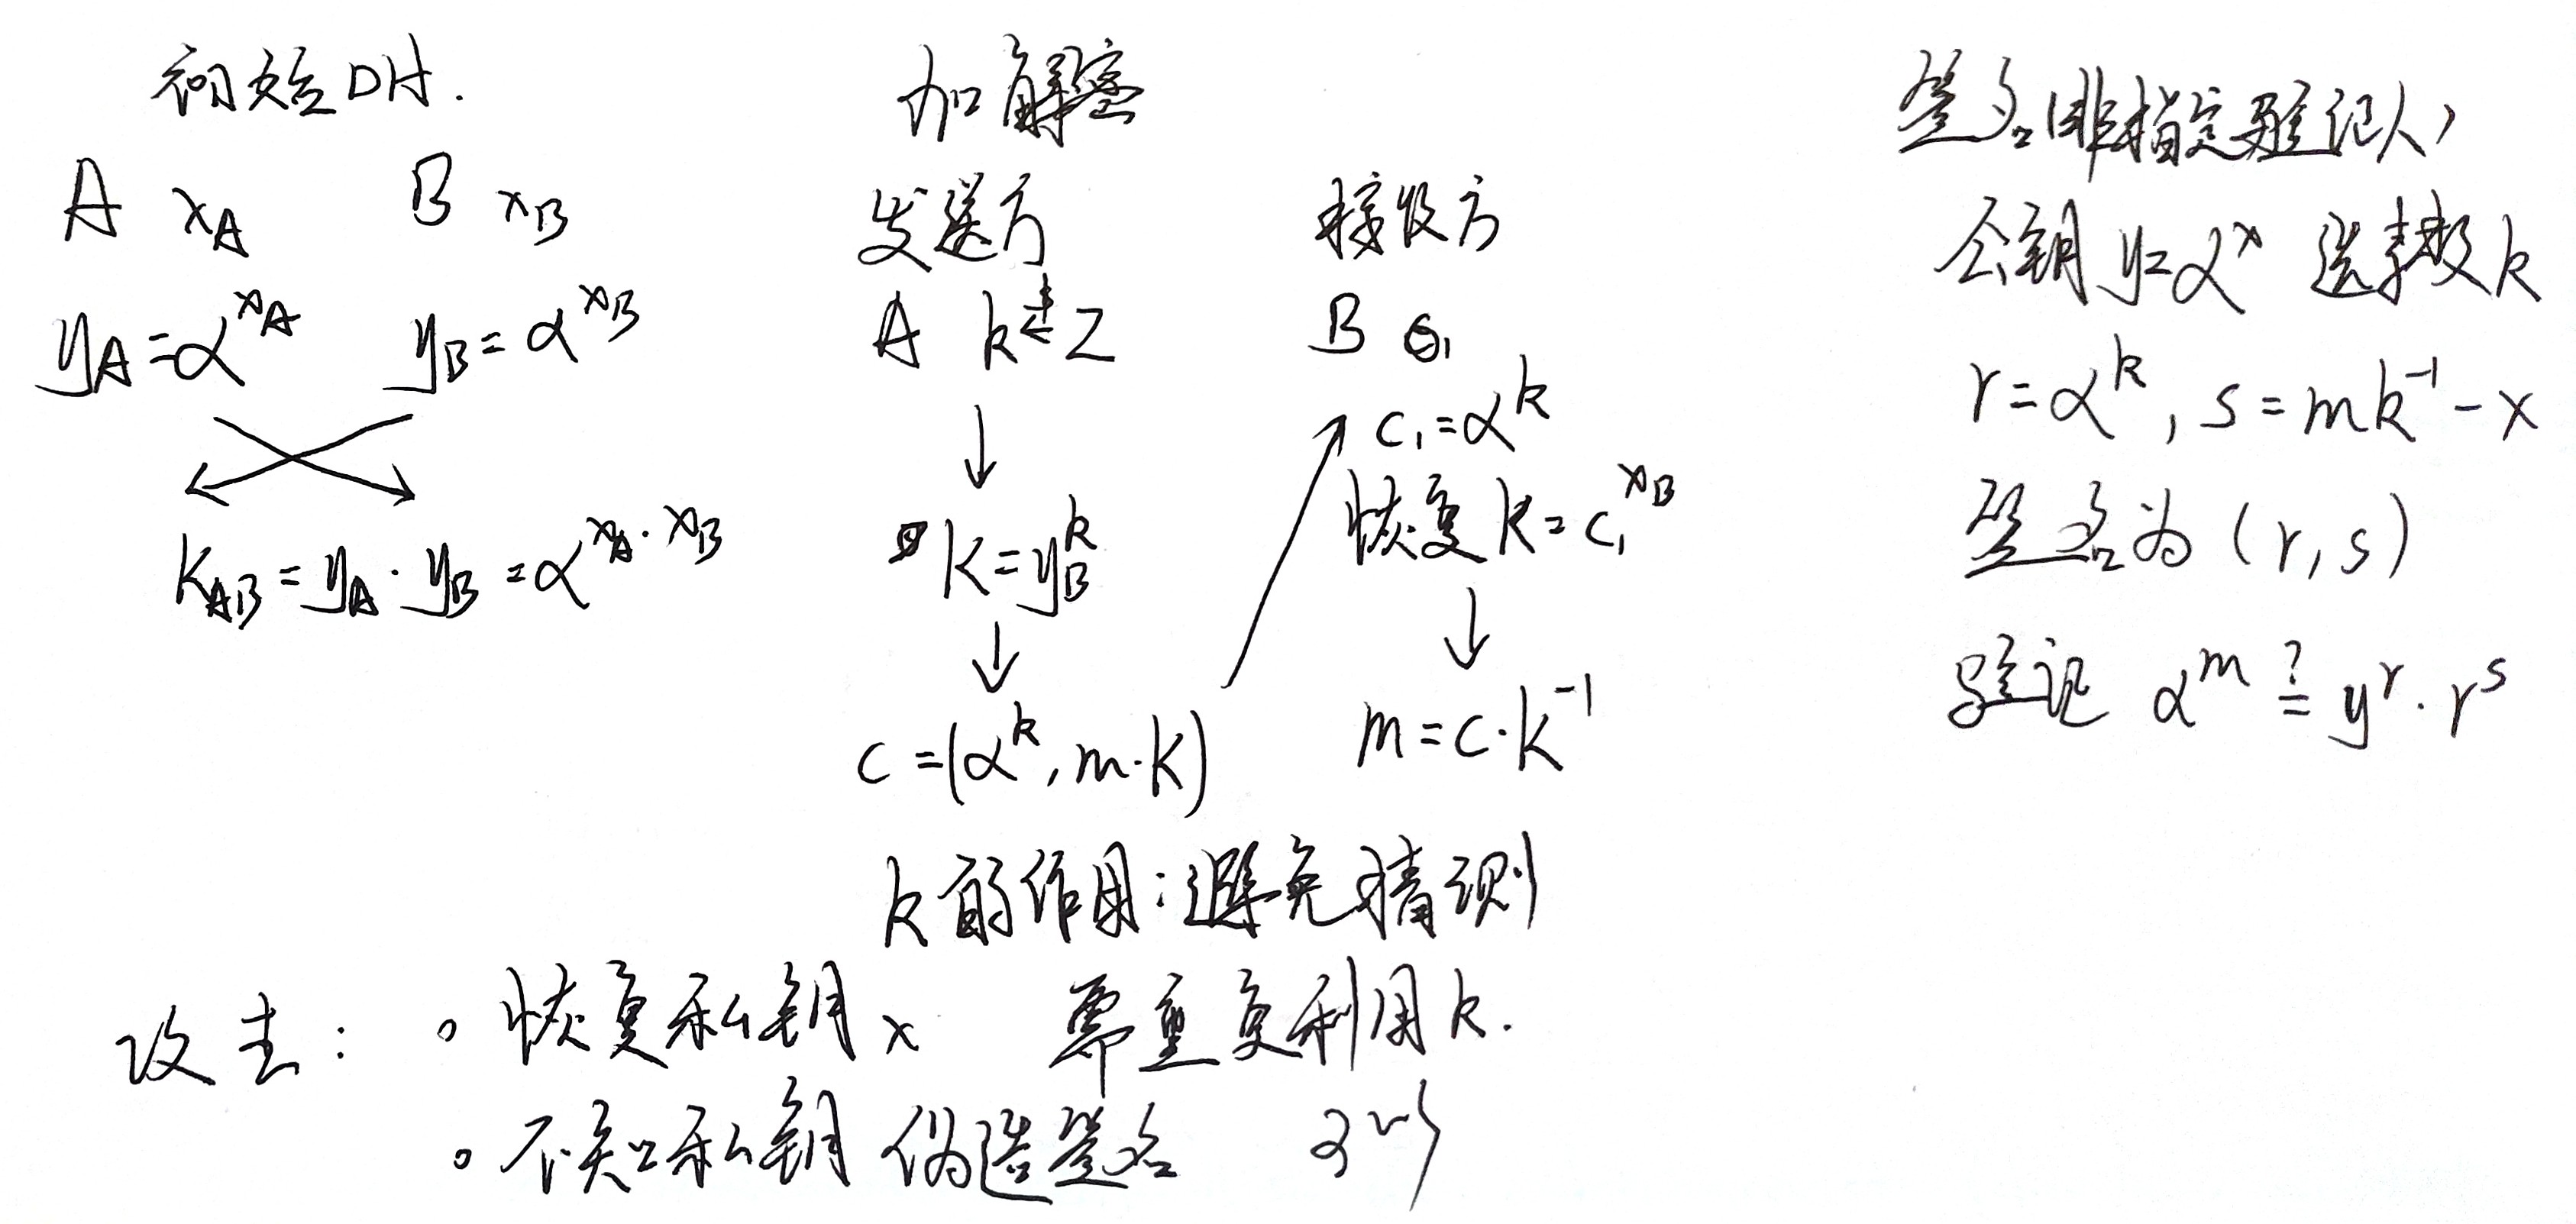 初始DH.
A x_A B x_B
y_A=α^{x_A} y_B=α^{x_B}
K_{AB}=y_A·y_B=α^{x_A·x_B}
加解密
发送方 接收方
A k Z
K=y_B^k
c=(α^k, m·K)
B
c_1=α^k
恢复K=c_1^{x_B}
m=c·K^{-1}
k的作用:避免猜测
签名(非指定验证人)
公钥y=α^x 选择 k
r=α^k, s=mk^{-1}-x
签名为(r,s)
验证 α^m ?= y^r·r^s
攻击:
。恢复私钥x 需重复利用k.
。不知私钥 伪造签名 可以